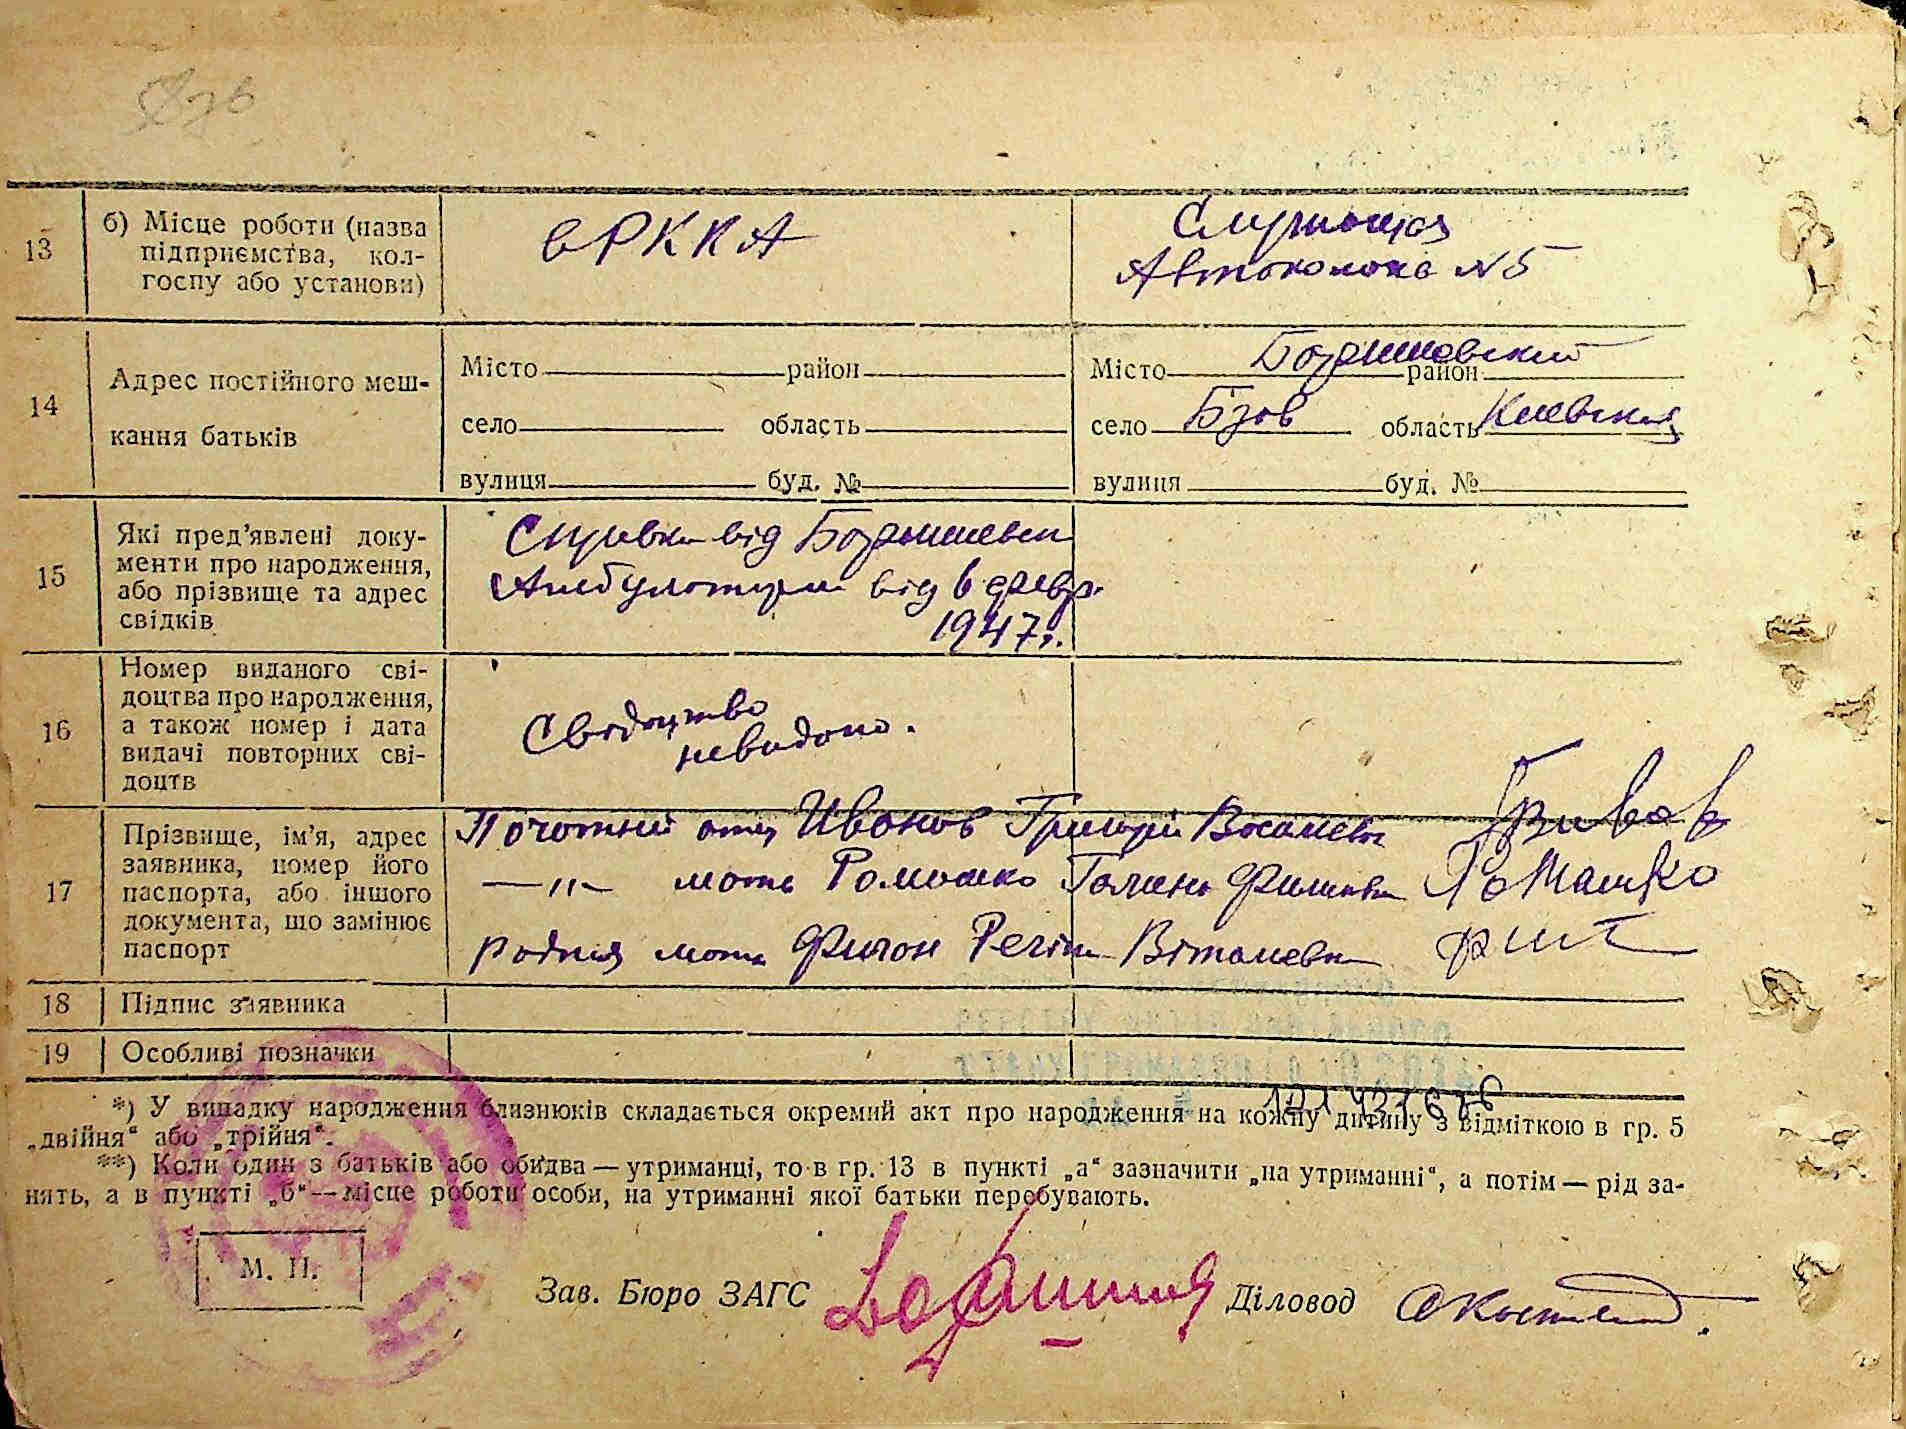 13
б) Місце роботи (назва
підприємства, кол-
госпу або установи)
в РККА
Служащая
Автоколона №5
14
Адрес постійного меш-
кання батьків
Місто район
село область
вулиця буд. №
Місто район
село Бзов область Киевская
вулиця буд. №
15
Які пред'явлені доку-
менти про народження,
або прізвище та адрес
свідків
Справка від
Амбулатории від 6 февр.
1947 г.
16
Номер виданого сві-
доцтва про народження,
а також номер і дата
видачі повторних сві-
доцтв
Свидоцтво
невидано.
17
Прізвище, ім'я, адрес
заявника, номер його
паспорта, або іншого
документа, що замінює
паспорт
отец Иванов Григорий
—„— мать Ромашко Галина Ромашко
родная мать
18
Підпис заявника
19
Особливі позначки
*) У випадку народження близнюків складається окремий акт про народження на кожну дитину з відміткою в гр. 5
„двійня“ або „трійня“.
**) Коли один з батьків або обидва — утриманці, то в гр. 13 в пункті „а“ зазначити „на утриманні“, а потім — рід за-
нять, а в пункті „б“ — місце роботи особи, на утриманні якої батьки перебувають.
М. П.
Зав. Бюро ЗАГС
Діловод